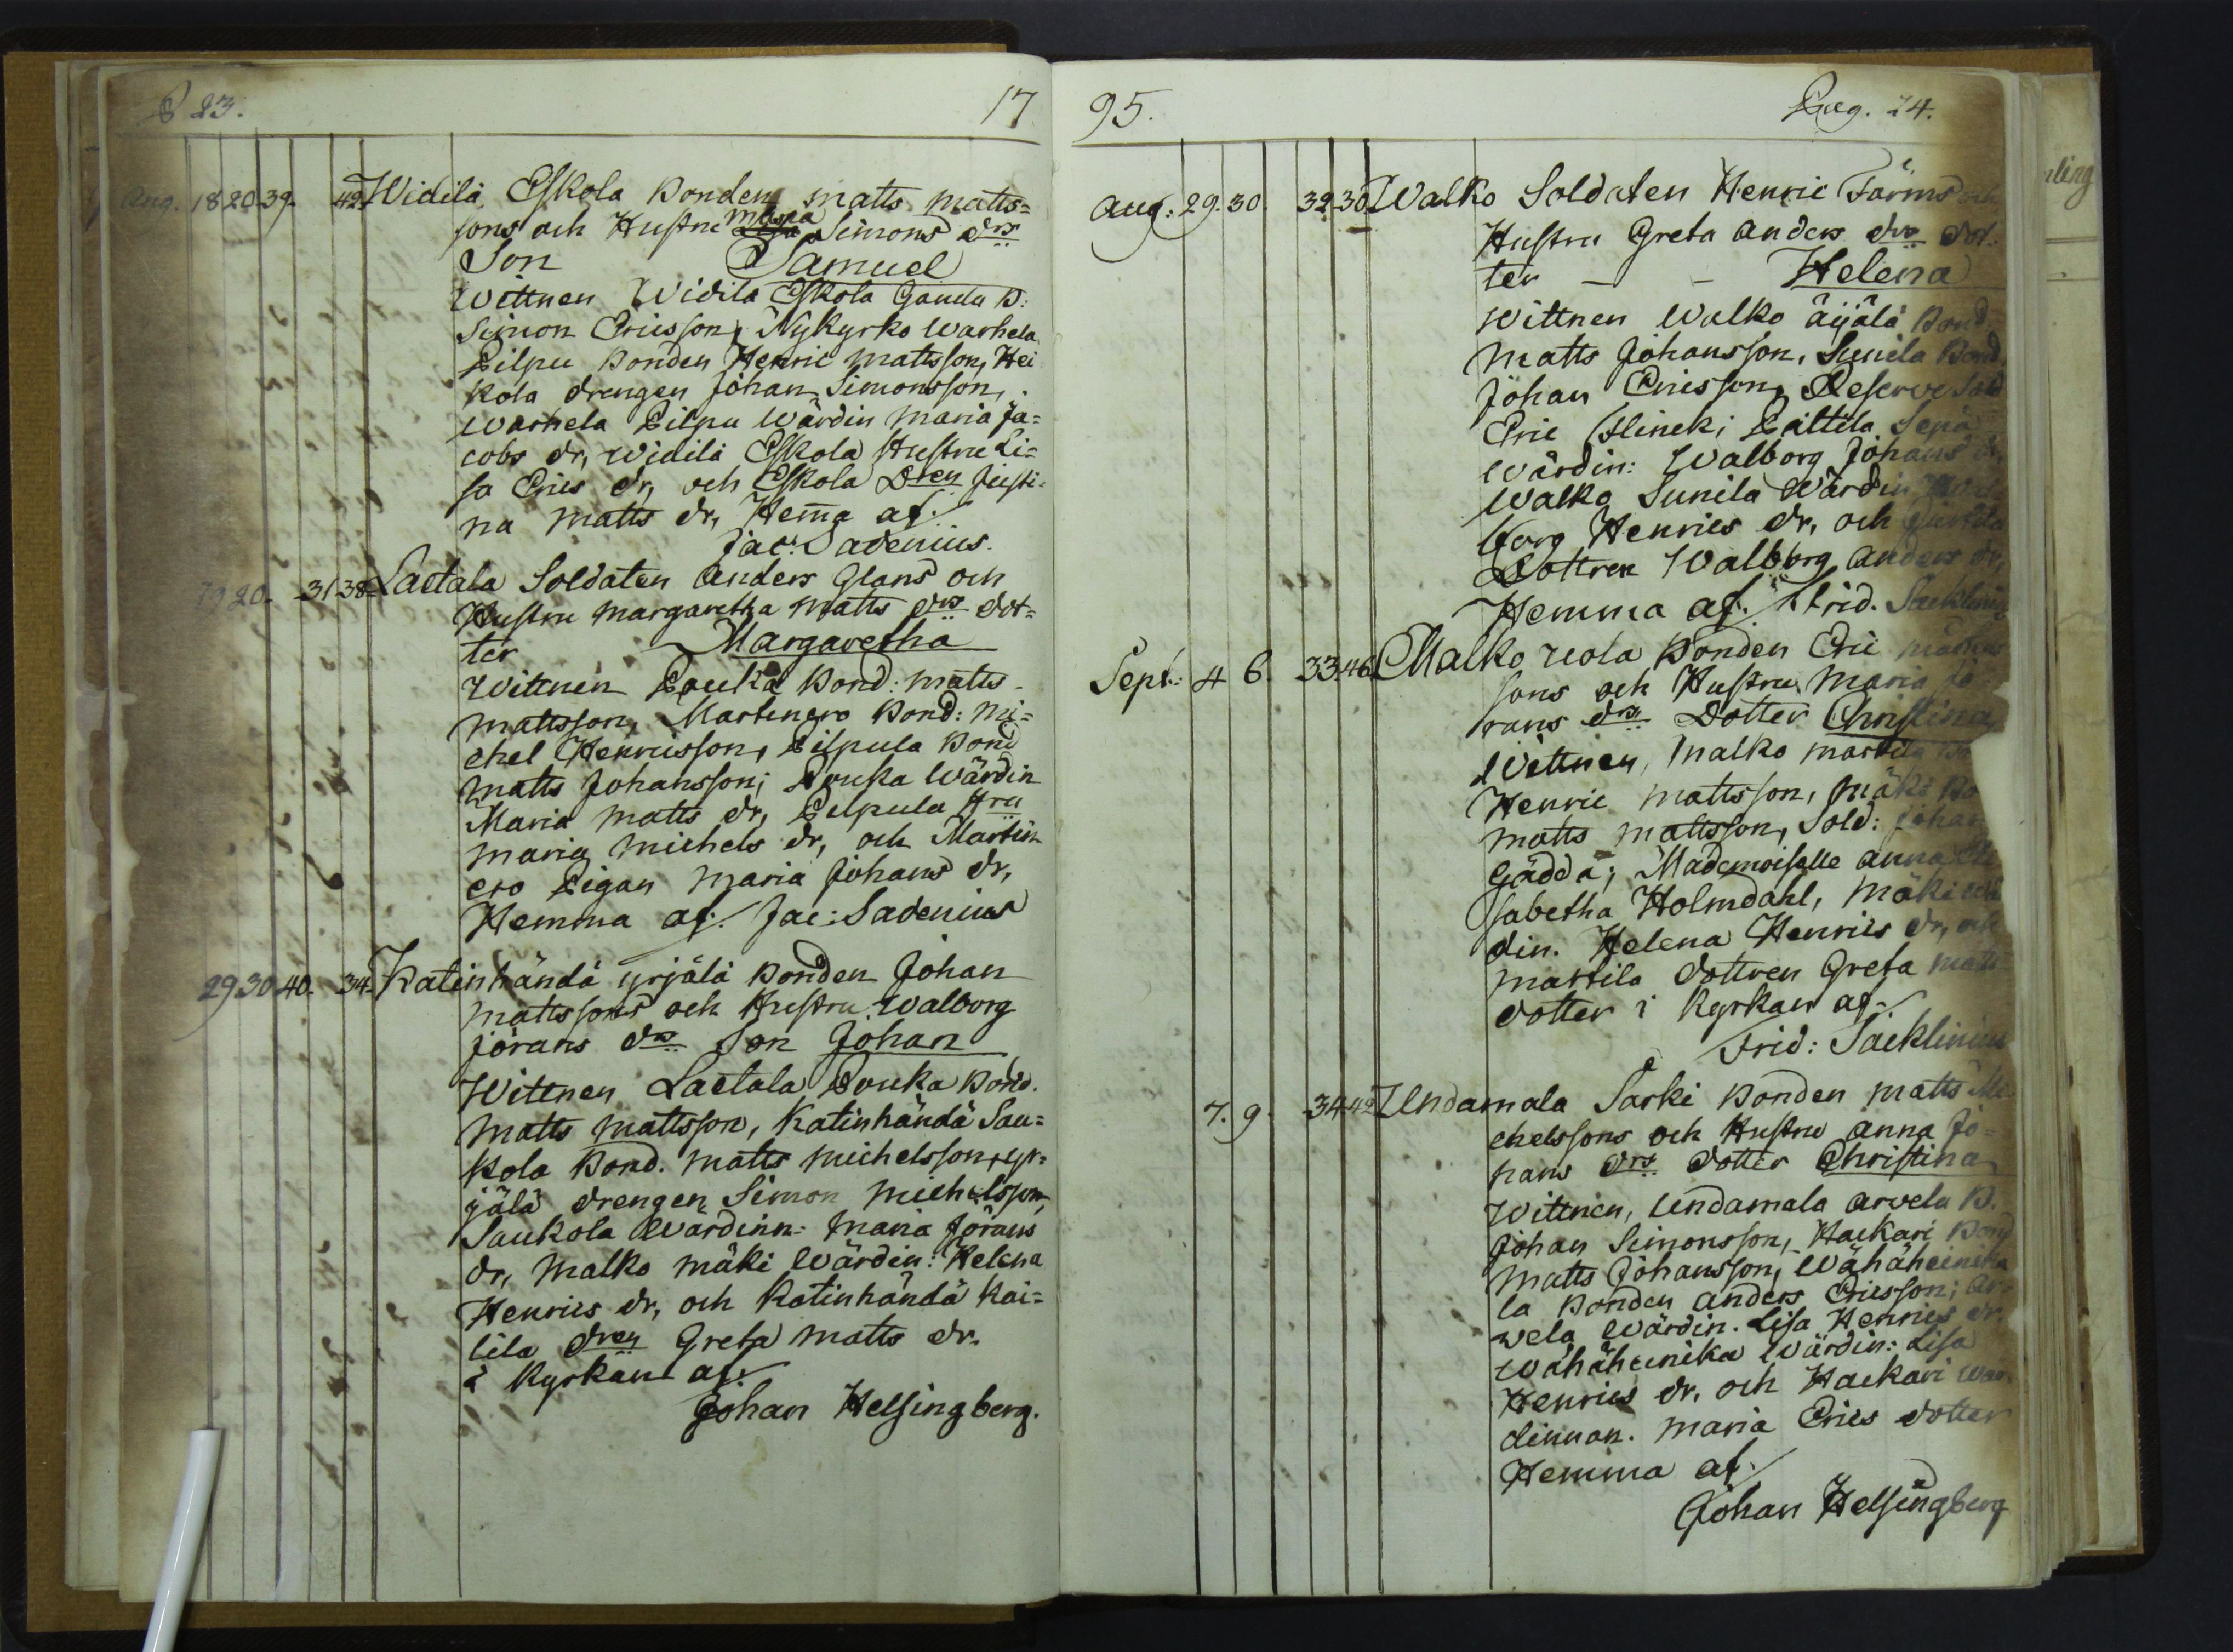 P 23. 17
Aug. 18 20. 39. 42. Widilä, Eskola Bonden Matts Matts=
sons och Hustru Maria Lisa Simons drs
Son Samuel
Wittnen Widilä Eskola Gamla B:
Simon Ericsson, Nykyrko Warhela
Pilpu Bonden Henric Mattsson, Hei
kola drengen Johan Simonsson,
Warhela Pilpu Wärdin Maria Ja=
cobs dr, Widilä Eskola Hustru Li=
sa Erics dr, och Eskola Dren Justi=
na Matts dr, Hem̄a af.
Jac: Sadenius.
19 20. 31 38. Laetala Soldaten Anders Glans och
Hustru Margaretha Matts drs dot=
ter Margaretha
Wittnen Pouka Bond: Matts
Mattsson, Martinero Bond: Mi=
chel Henricsson, Pilpula Bond
Matts Johansson; Pouka Wärdin
Maria Matts dr, Pilpula Hru
Maria Michels dr, och Martin
ero Pigan Maria Johans dr,
Hemma af. Jac: Sadenius
29 30 40. 34. Katinhändä yrjälä Bonden Johan
Mattssons och Hustru Walborg
Jörans drs Son Johan
Wittnen Laetala Pouka Bond.
Matts Mattsson, Katinhändä Sau=
kola Bond. Matts Michelsson, yr=
jälä drengen Simon Michelsson,
Saukola Wärdinn: Maria Jörans
dr, Malko Mäki Wärdin: Helena
Henrics dr, och Katinhändä Kai=
lila dren Greta Matts dr.
i Kyrkan af.
Johan Helsingberg.
95. Pag. 24.
Aug: 29. 30. 32 30 Walko Soldaten Henric Färms och
Hustru Greta Anders drs dot:
ter - - Helena
Wittnen Walko äijälä Bond
Matts Johansson, Sunila Bond
Johan Ericsson, Reserve Sold
Eric Flinck; Paltila Sepä
Wärdin: Walborg Johans dr,
Walko Sunila Wärdin
borg Henrics dr, och
Dottren Walborg Anders dr,
Hemma af. Frid. Saeklinius
Sept: 4 6. 33 46 Malko uola Bonden Eric
sons och Hustru Maria Jö
rans drs Dotter Christina
Wittnen, Malko Martila
Henric Mattsson, Mäki Bo
Matts Mattsson, Sold: Johan
Gädda; Mademoiselle Anna Eli
sabetha Holmdahl, Mäki
din. Helena Henrics dr, och
Martila dottren Greta Matts
dotter i Kyrkan af.
Frid: Saeklinius
7. 9. 34 42 Undamala Sarki Bonden Matts Mi
chelssons och Hustru Anna Jo=
hans drs dotter Christina
Wittnen, Undamala Arvela B.
Johan Simonsson, Hackari Bond
Matts Johansson, Wähäheinika
la Bonden Anders Ericsson; Ar=
wela Wärdin. Lisa Henrics dr.
Wähäheinika Wärdin: Lisa
Henrics dr. och Hackari Wär
dinnan. Maria Erics dotter
Hemma af.
Johan Helsingberg